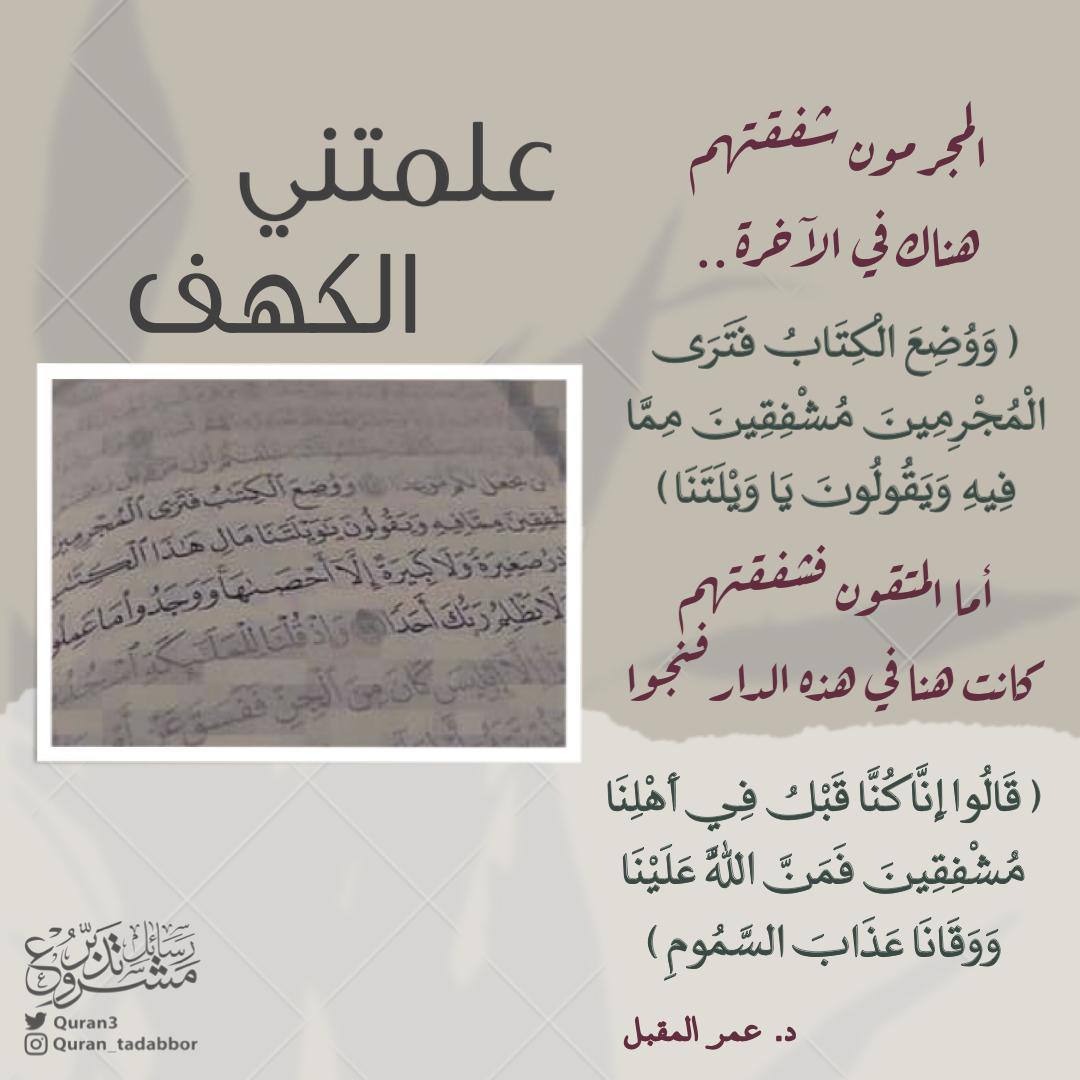 علمتني
الكهف
المجرمون شفقتهم
هناك في الآخرة..
( وَوُضِعَ الْكِتَابُ فَتَرَى
الْمُجْرِمِينَ مُشْفِقِينَ مِمَّا
فِيهِ وَيَقُولُونَ يَا وَيْلَتَنَا )
أما المتقون فشفقتهم
كانت هنا في هذه الدار فنجوا
( قَالُوا إِنَّا كُنَّا قَبْلُ فِي أَهْلِنَا
مُشْفِقِينَ فَمَنَّ اللَّهُ عَلَيْنَا
وَوَقَانَا عَذَابَ السَّمُومِ )
د. عمر المقبل
وَوُضِعَ ٱلْكِتَٰبُ فَتَرَى ٱلْمُجْرِمِينَ
مُشْفِقِينَ مِمَّا فِيهِ وَيَقُولُونَ يَٰوَيْلَتَنَا مَالِ هَٰذَا ٱلْكِتَٰبِ
صَغِيرَةً وَلَا كَبِيرَةً إِلَّآ أَحْصَىٰهَا وَوَجَدُوا۟ مَا عَمِلُوا۟
رَبُّكَ أَحَدًا وَإِذْ قُلْنَا لِلْمَلَٰٓئِكَةِ
إِبْلِيسَ كَانَ مِنَ ٱلْجِنِّ فَفَسَقَ
رسائل تدبر
مشروع
Quran3
Quran_tadabbor